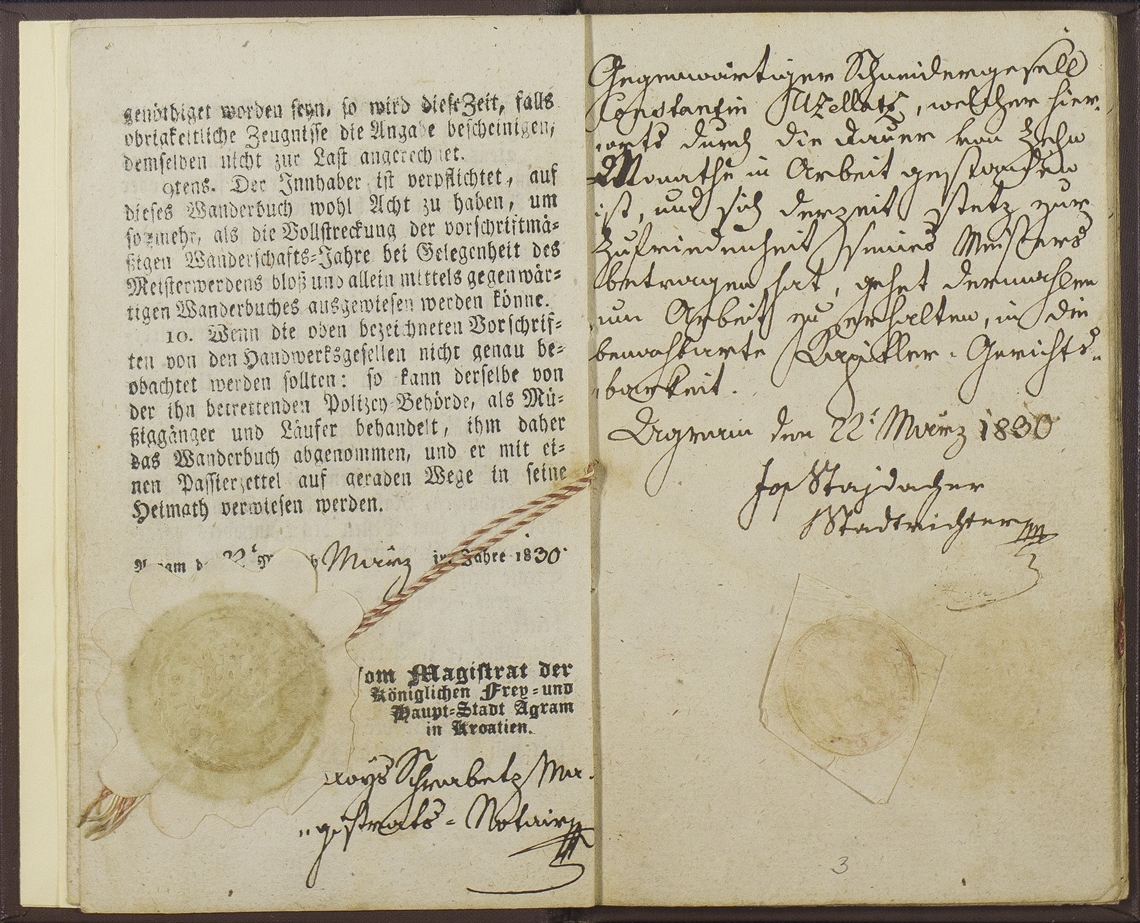 genöthiget worden seyn, so wird diese Zeit, falls
obrigkeitliche Zeugnisse die Angabe bescheinigen,
demselben nicht zur Last angerechnet.
9tens. Der Innhaber ist verpflichtet, auf
dieses Wanderbuch wohl Acht zu haben, um
so mehr, als die Vollstreckung der vorschriftmä-
ßigen Wanderschafts-Jahre bei Gelegenheit des
Meisterwerdens bloß und allein mittels gegenwär-
tigen Wanderbuches ausgewiesen werden könne.
10. Wenn die oben bezeichneten Vorschrif-
ten von den Handwerksgesellen nicht genau be-
obachtet werden sollten: so kann derselbe von
der ihn betrettenden Polizey-Behörde, als Mü-
ßiggänger und Läufer behandelt, ihm daher
das Wanderbuch abgenommen, und er mit ei-
nen Passierzettel auf geraden Wege in seine
Heimath verwiesen werden.
22t März im Jahre 1830.
om Magistrat der
Königlichen Frey- und
Haupt-Stadt Agram
in Kroatien.
Schrabetz Ma-
gistrats-Notair
Gegenwärtiger Schneidergesell
Constantin welcher hier-
orts durch die Dauer von Zehn
Monathe in Arbeit gestanden
ist, und sich derzeit stetz zur
Zufriedenheit seines Meisters
betragen hat, gehet dermahlen
um Arbeit zu erhalten, in die
benachbarte Capitler-Gerichts-
barkeit.
Agram den 22t März 1830
Jos Stajdacher
Stadtrichter
3